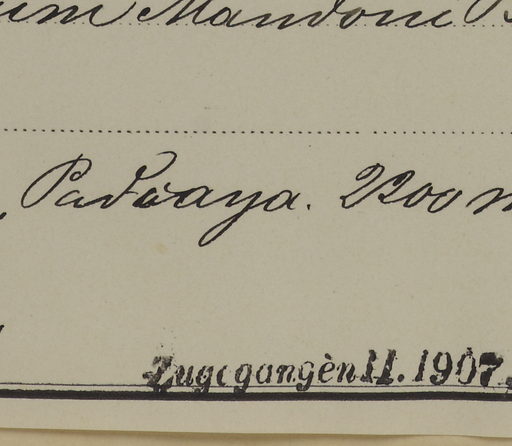 um Mandoni B
Padcaya. 2200 m
Zugegangen 11. 1907.